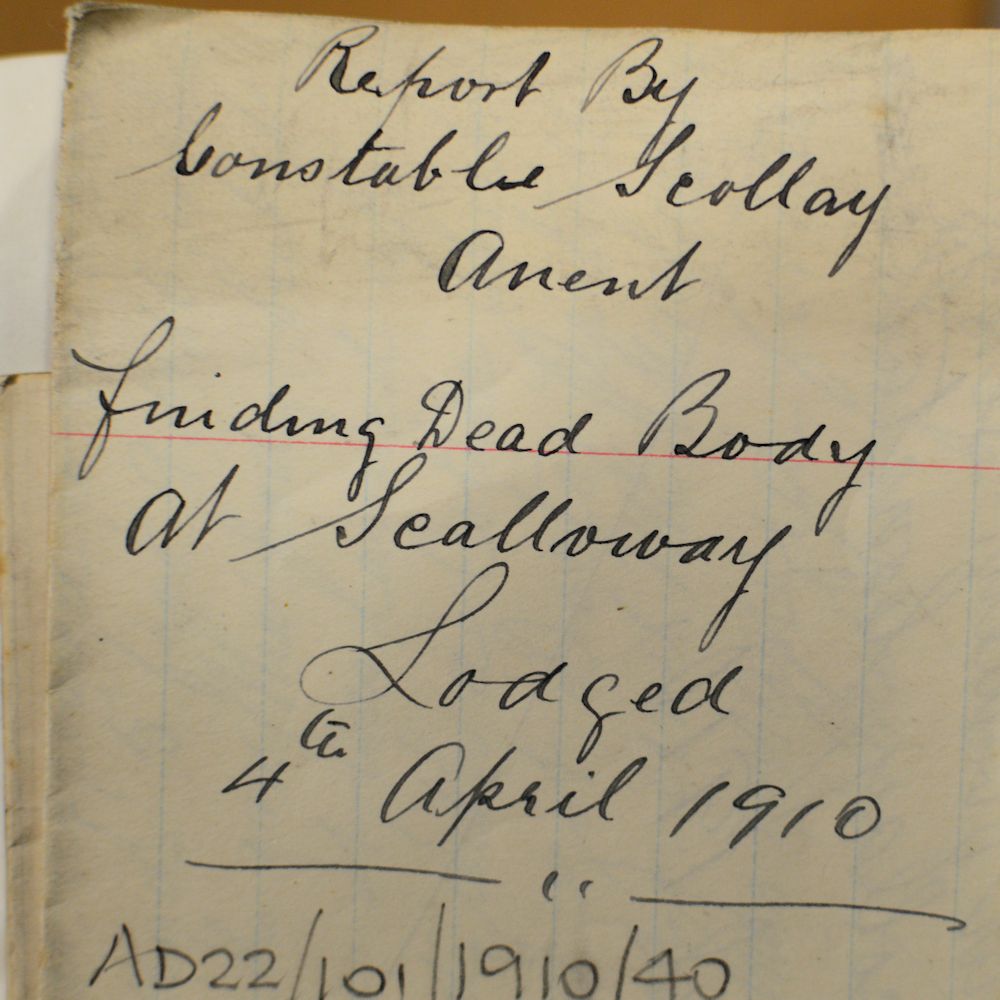 Report By
Constable Scollay
Anent
finding Dead Body
at Scalloway
Lodged
4th April 1910
AD22/101/1910/40